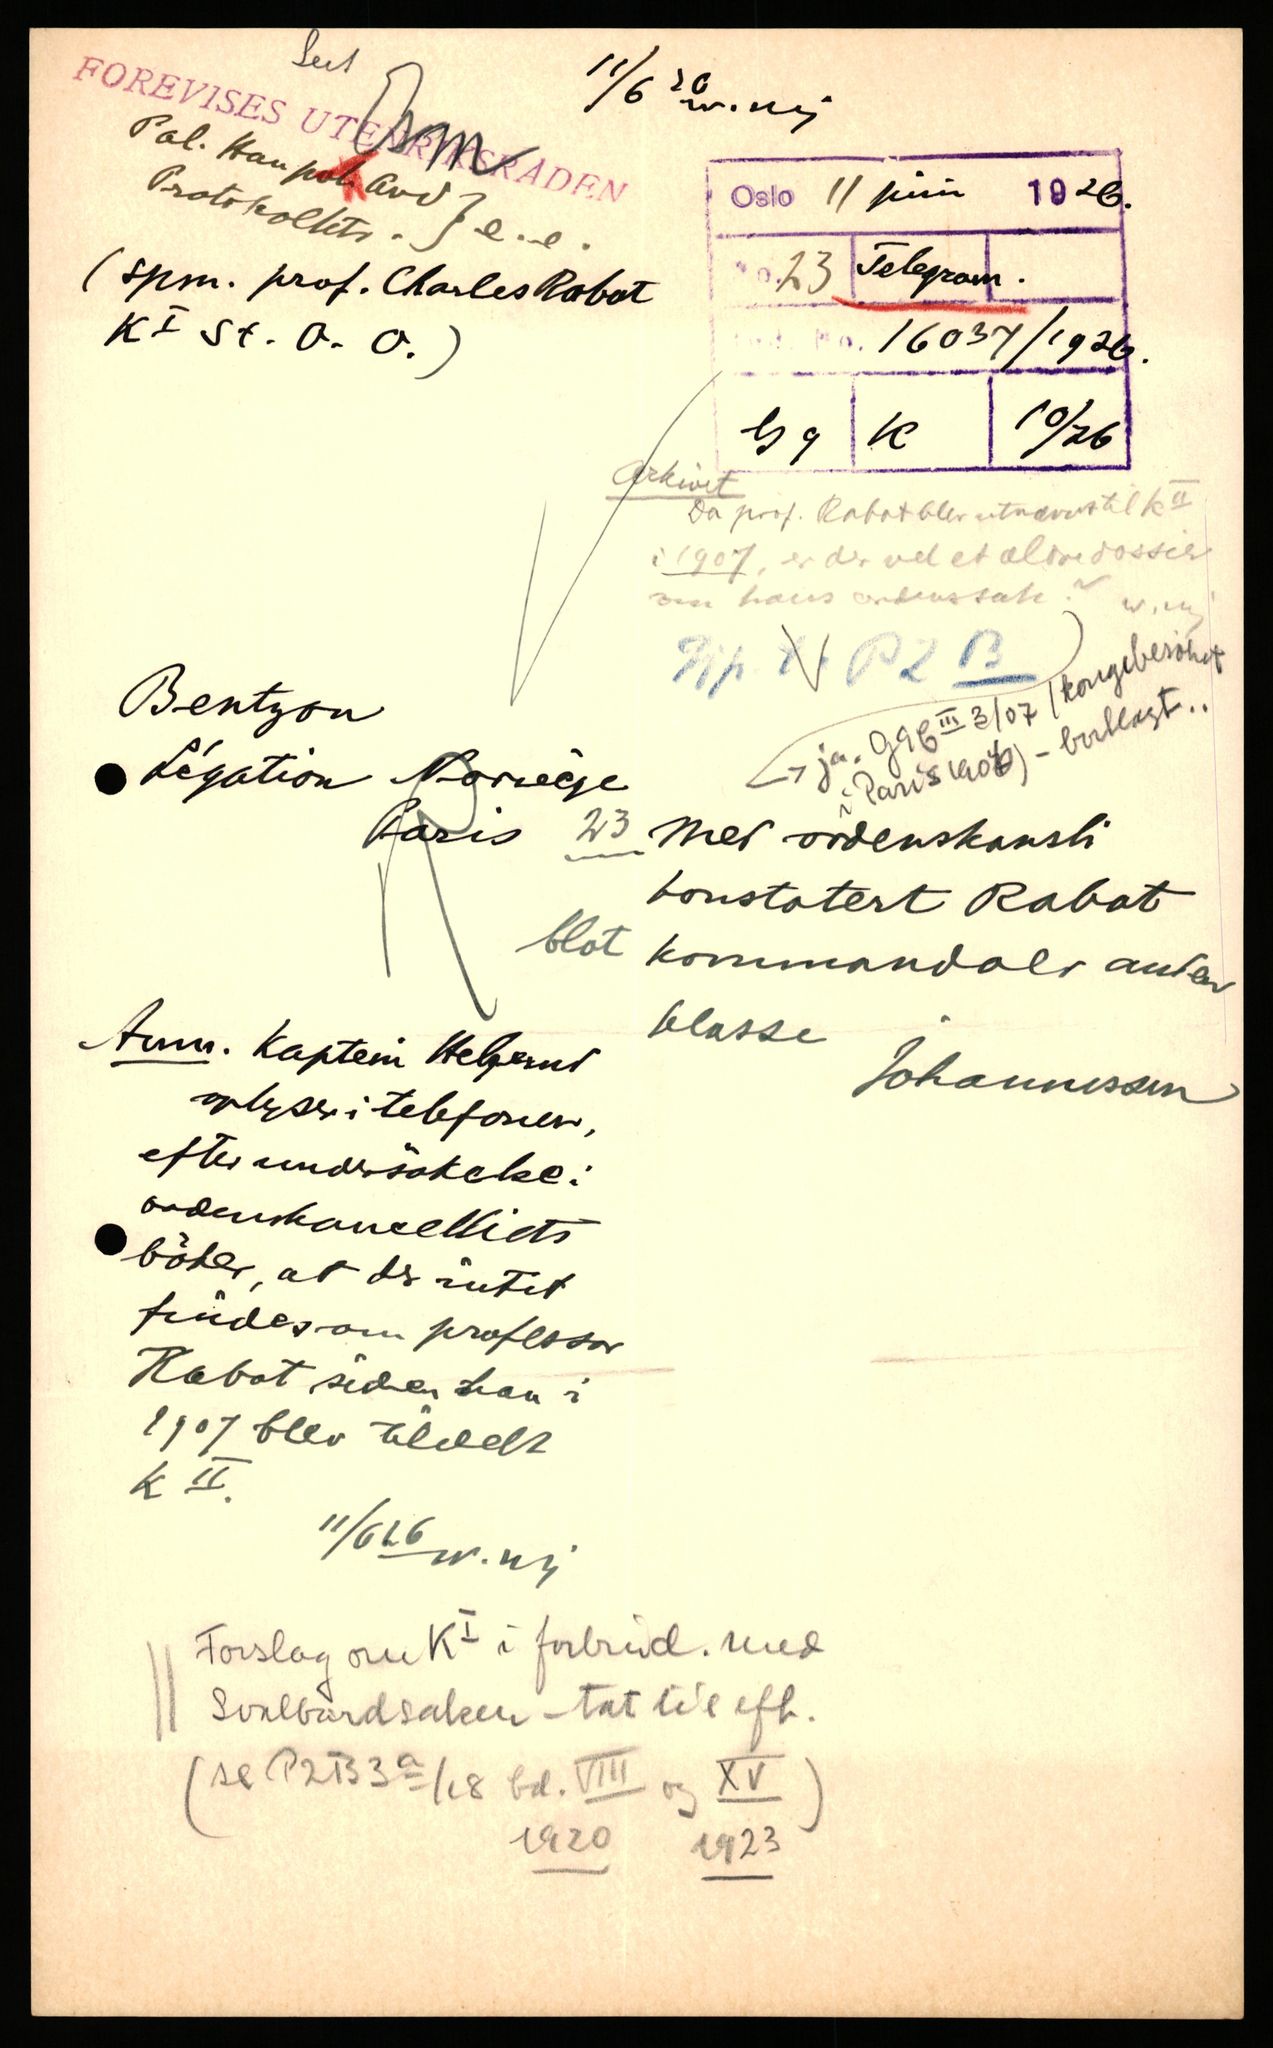 Sest
FOREVISES UTENRIKSRÅDEN
11/6 26 w.mj
Pol. Han pol. Avd
Protokollktr. } e.e.
(spm. prof. Charles Rabot
K I St. O. O.)
Oslo 11 juni 1926.
No. 23 Telegram.
No. 16037/1926.
G 9 K 10/26
Arkivet
Da prof. Rabot blev utnævnt til K II
i 1907, er der vel et ældre dossier
om hans ordenssak? w.mj
P 2 B
→ ja. G9C III 3/07 (kongebesøket
i Paris 1907) - bortlagt..
Bentzon
Légation Norvège
Paris 23 Med ordenskansli
konstatert Rabot
blot kommandør anden
klasse
Johannessen
Anm. Kaptein
oplyser i telefonen,
efter undersökelse i
ordenskancelliets
böker, at der intet
findes om professor
Rabot siden han i
1907 blev tildelt
K II.
11/6 26 w.mj
Forslag om K I i forbind. med
Svalbardsaken - tat til eft.
(se P2B3a/18 bd. VIII og XV)
1920 1923